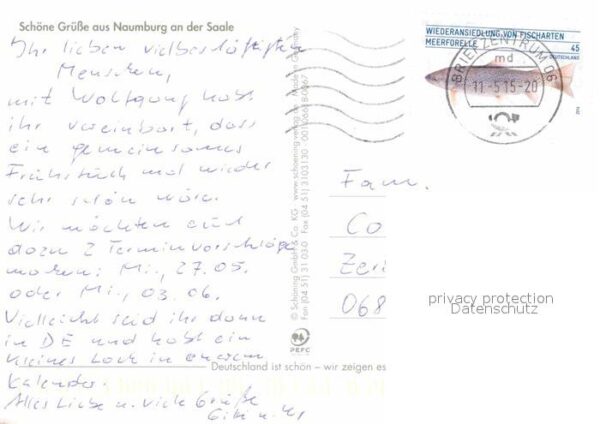 Schöne Grüße aus Naumburg an der Saale
Ihr lieben vielbeschäftigten
Menschen,
mit Wolfgang habt
ihr vereinbart, dass
ein gemeinsames
Frühstück mal wieder
sehr schön wäre.
Wir möchten euch
dazu 2 Terminvorschläge
machen: Mi., 27.05.
oder Mi., 03.06.
Vielleicht seid ihr dann
in DE und habt ein
kleines Loch in eurem
Kalender.
Alles Liebe u. Viele Grüße
© Schöning GmbH & Co. KG www.schoening-verlag
Fon (04 51) 3 10 3-0 Fax (04 51) 3103130
PEFC
Deutschland ist schön – wir zeigen es
WIEDERANSIEDLUNG VON FISCHARTEN
MEERFORELLE
45
DEUTSCHLAND
BRIEFZENTRUM 06
md
11.-5.15-20
Fam.
Co
Zeri
068
privacy protection
Datenschutz